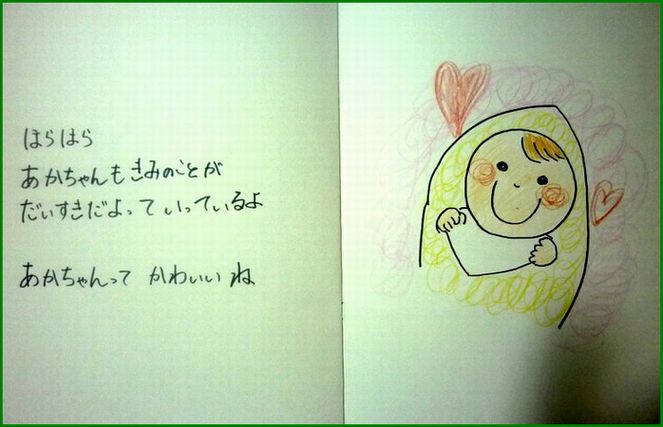 はらはら
あかちゃんもきみのことが
だいすきだよって いっているよ
あかちゃんって かわいいね